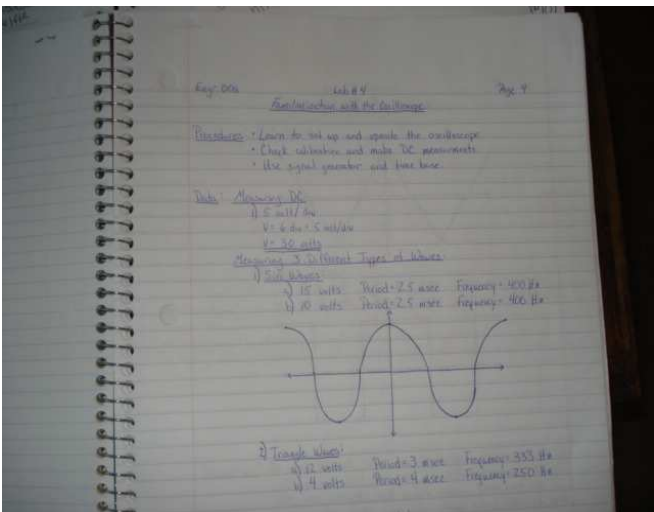 Lab # 4 Page 9
Familiarization with the Oscilloscope
Procedures: • Learn to set up and operate the oscilloscope
• Check calibration and make DC measurements
• Use signal generator and time base.
Data: Measuring DC
1) 5 volt/div
V = 6 div × 5 volt/div
V = 30 volts
Measuring 3 Different Types of Waves
1) Sine Waves
a) 15 volts Period = 2.5 msec Frequency = 400 Hz
b) 10 volts Period = 2.5 msec Frequency = 400 Hz
2) Triangle Waves:
a) 12 volts Period = 3 msec Frequency = 333 Hz
b) 4 volts Period = 4 msec Frequency = 250 Hz